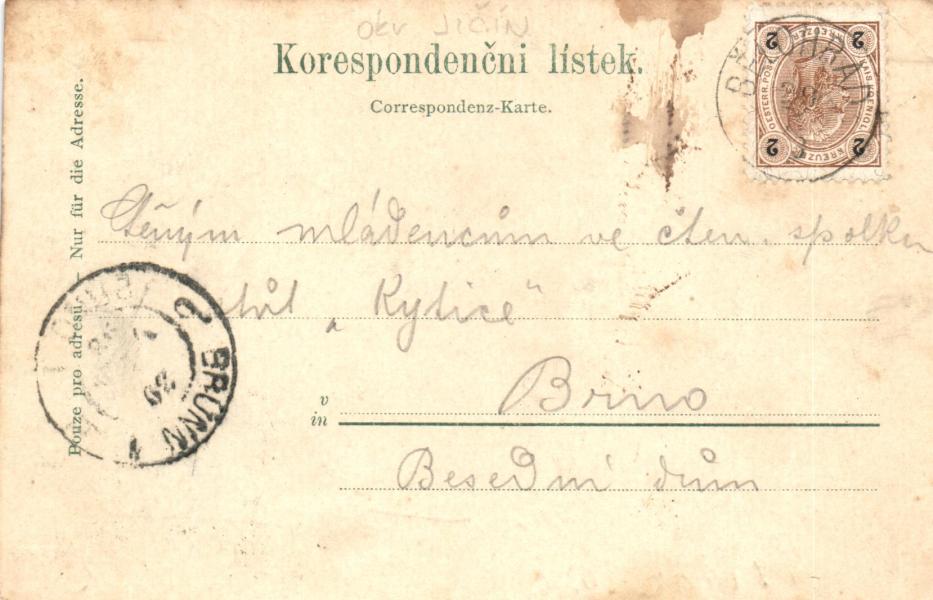 okr JIČÍN
Korespondenčni lístek.
Correspondenz-Karte.
Pouze pro adresu. — Nur für die Adresse.
2 2
KAIS. KOENIGL. OESTERR. POST
KREUZER KREUZER
2 2
BRÜNN 1
29
mládencům ve čten. spolku
"Kytice"
v
in
Brno
Besední dům